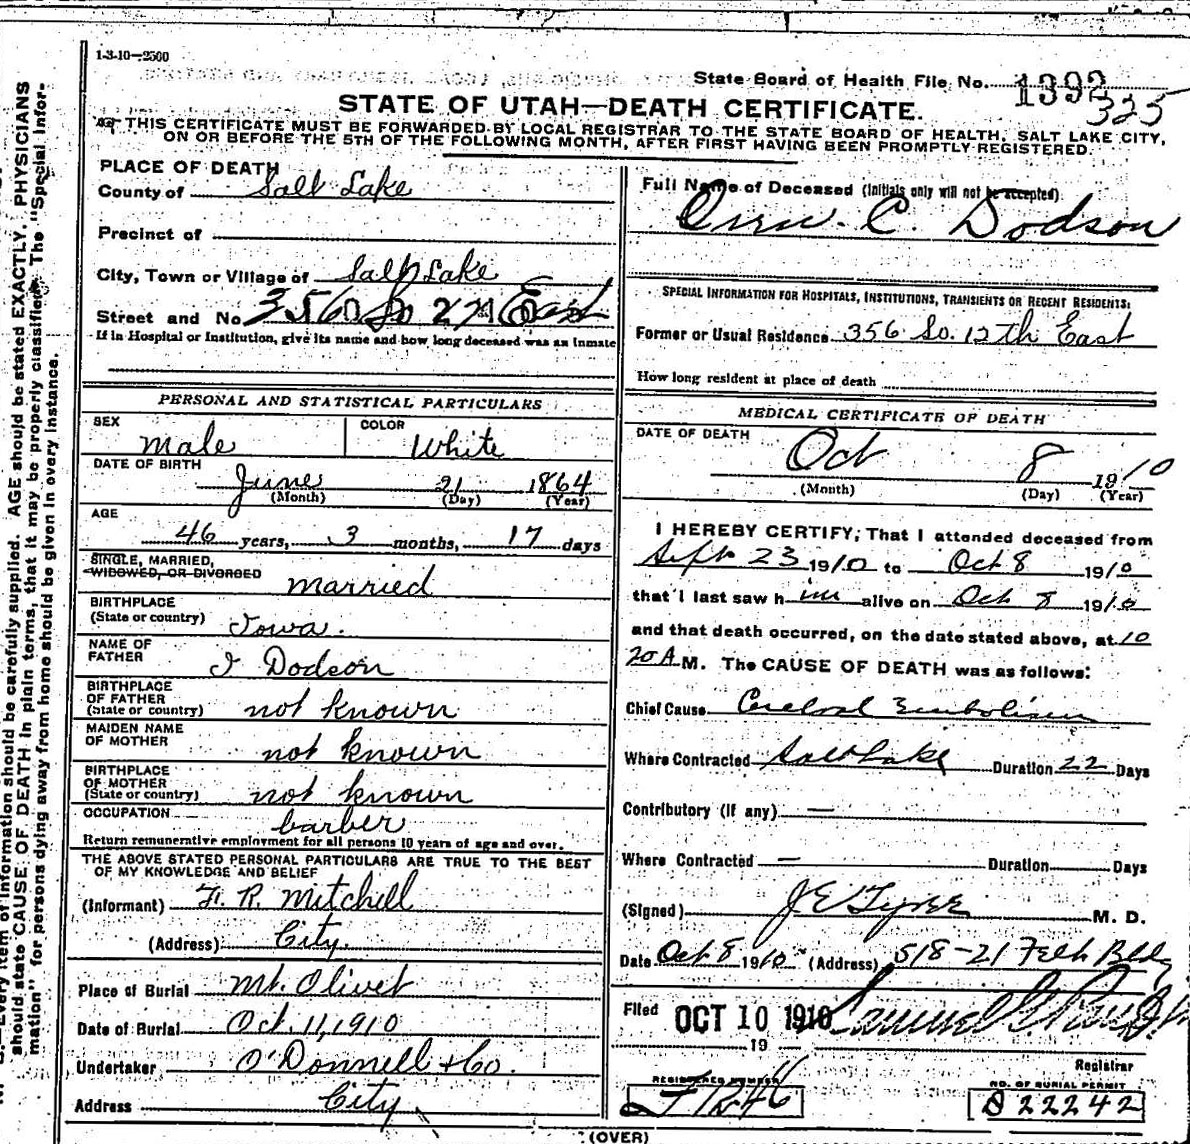 1-3-10—2500
State Board of Health File No. 1392
325
STATE OF UTAH—DEATH CERTIFICATE.
THIS CERTIFICATE MUST BE FORWARDED BY LOCAL REGISTRAR TO THE STATE BOARD OF HEALTH, SALT LAKE CITY,
ON OR BEFORE THE 5TH OF THE FOLLOWING MONTH, AFTER FIRST HAVING BEEN PROMPTLY REGISTERED.
PLACE OF DEATH
County of Salt Lake
Precinct of
City, Town or Village of Salt Lake
Street and No. 356 So East
If in Hospital or Institution, give its name and how long deceased was an Inmate
PERSONAL AND STATISTICAL PARTICULARS
SEX Male
COLOR White
DATE OF BIRTH
June 21 1864
(Month) (Day) (Year)
AGE
46 years, 3 months, 17 days
SINGLE, MARRIED,
WIDOWED, OR DIVORCED married
BIRTHPLACE
(State or country) Iowa.
NAME OF
FATHER Dodson
BIRTHPLACE
OF FATHER
(State or country) not known
MAIDEN NAME
OF MOTHER not known
BIRTHPLACE
OF MOTHER
(State or country) not known
OCCUPATION barber
Return remunerative employment for all persons 10 years of age and over.
THE ABOVE STATED PERSONAL PARTICULARS ARE TRUE TO THE BEST
OF MY KNOWLEDGE AND BELIEF
(Informant) R. Mitchell
(Address) City.
Place of Burial Mt. Olivet
Date of Burial Oct. 11, 1910
Undertaker O'Donnell & Co.
Address City
Full Name of Deceased (Initials only will not be accepted)
C. Dodson
SPECIAL INFORMATION FOR HOSPITALS, INSTITUTIONS, TRANSIENTS OR RECENT RESIDENTS:
Former or Usual Residence 356 So. 12th East
How long resident at place of death
MEDICAL CERTIFICATE OF DEATH
DATE OF DEATH
Oct 8 1910
(Month) (Day) (Year)
I HEREBY CERTIFY; That I attended deceased from
Sept 23 1910 to Oct 8 1910
that I last saw him alive on Oct 8 1910
and that death occurred, on the date stated above, at 10
20 A M. The CAUSE OF DEATH was as follows:
Chief Cause Cerebral Embolism
Where Contracted Salt Lake Duration 22 Days
Contributory (if any) —
Where Contracted — Duration Days
(Signed) J E Tyree M. D.
Date Oct 8 1910 (Address) 518-21 Felt Bldg
Filed OCT 10 1910
19
Registrar
REGISTERED NUMBER
NO. OF BURIAL PERMIT
22242
(OVER)
Every item of information should be carefully supplied. AGE should be stated EXACTLY. PHYSICIANS
should state CAUSE OF DEATH in plain terms, that it may be properly classified. The "Special Infor-
mation" for persons dying away from home should be given in every instance.